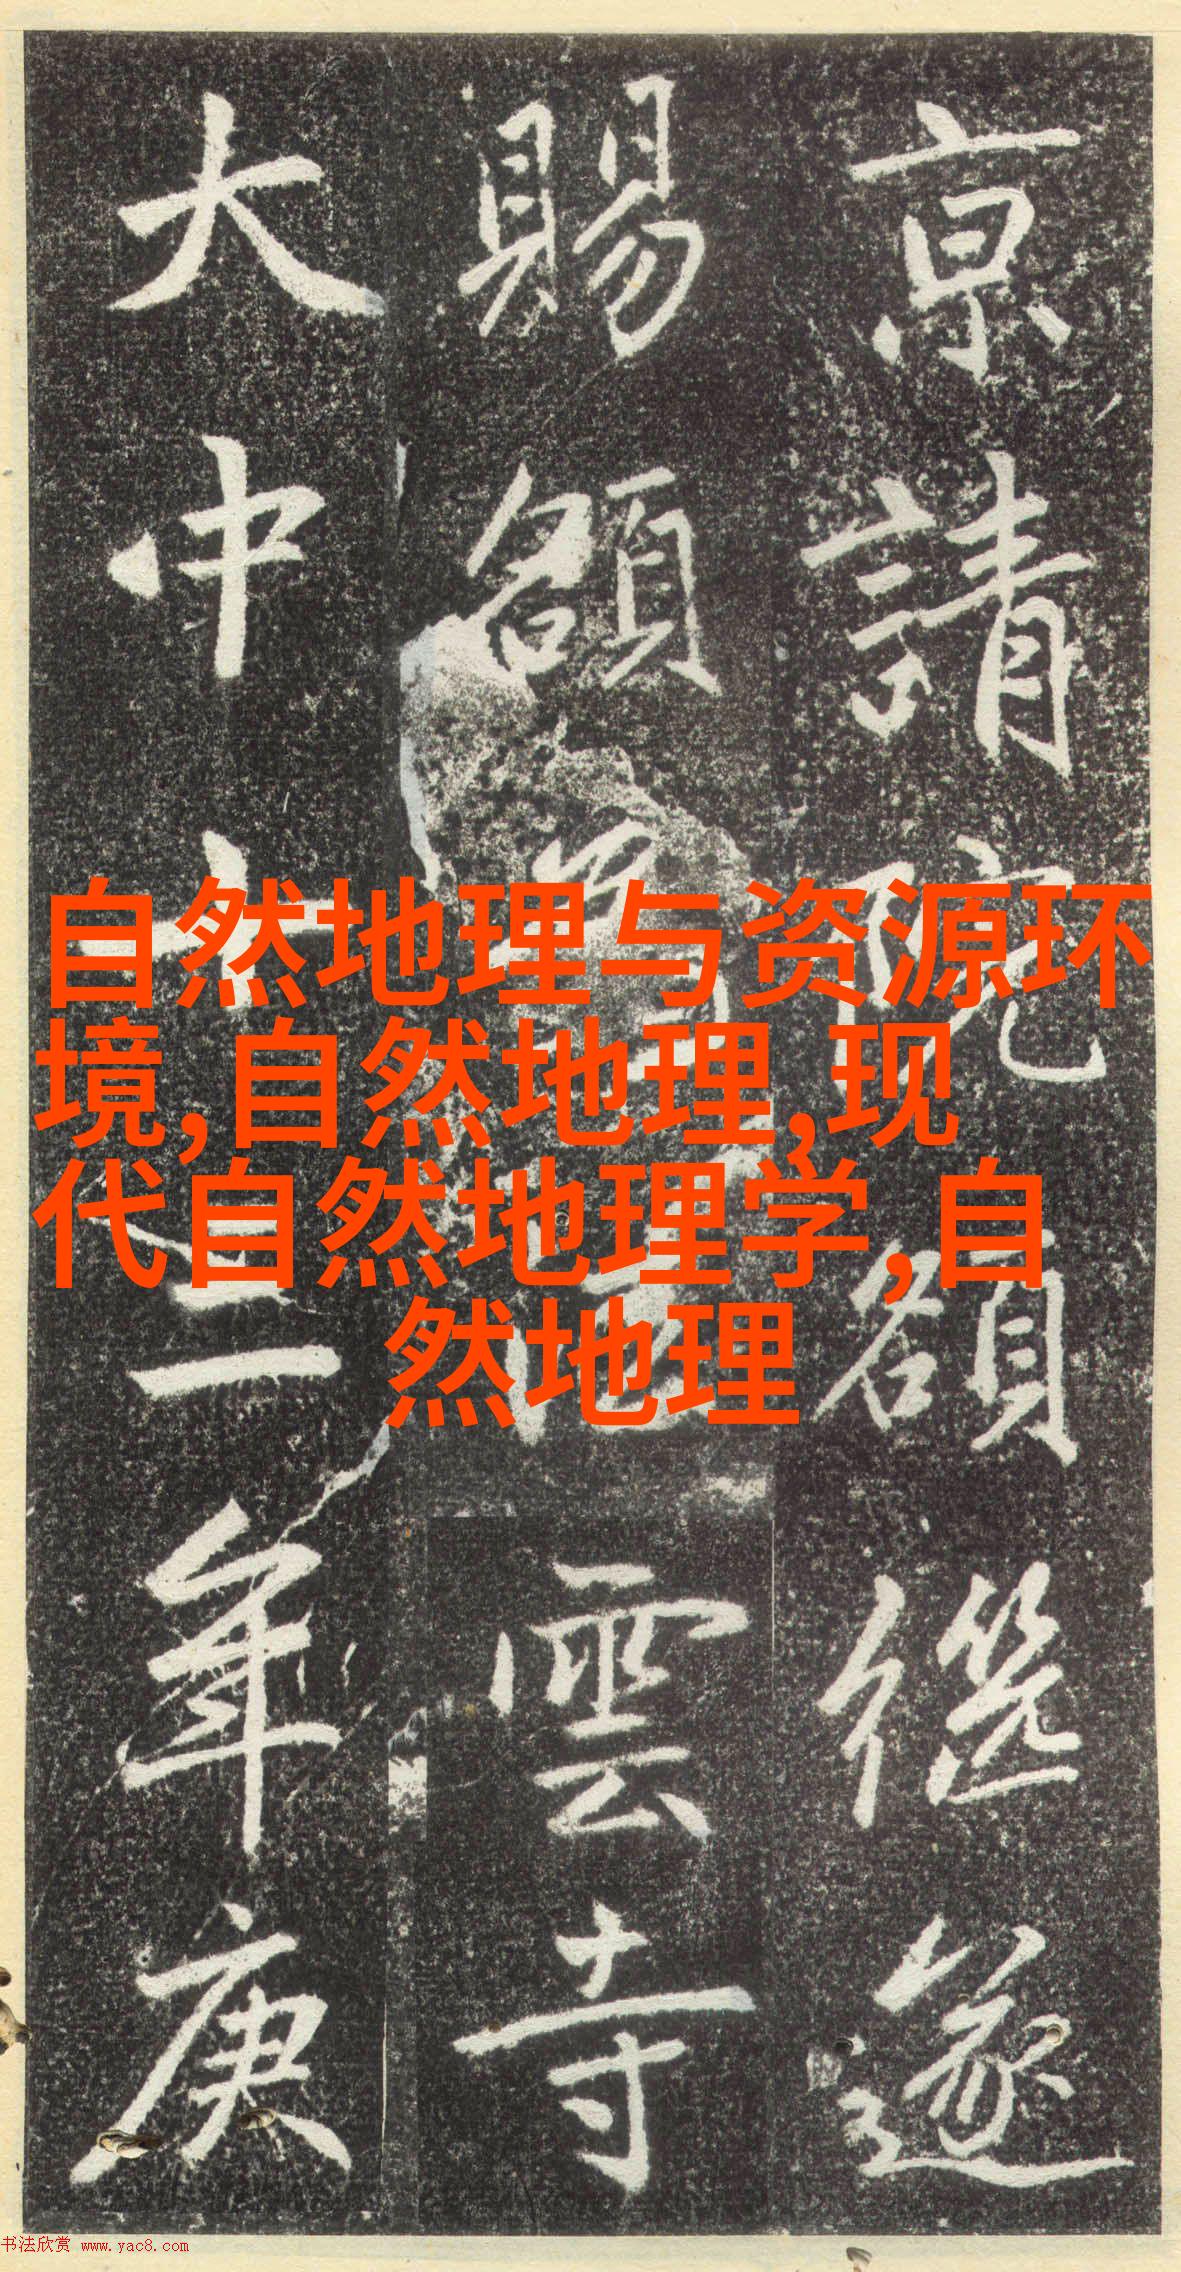 自然地理与资源环
境,自然地理,现
代自然地理学,自
然地理
京請院額遂
賜額雲寺
大中二年庚
书法欣赏 www.yac8.com